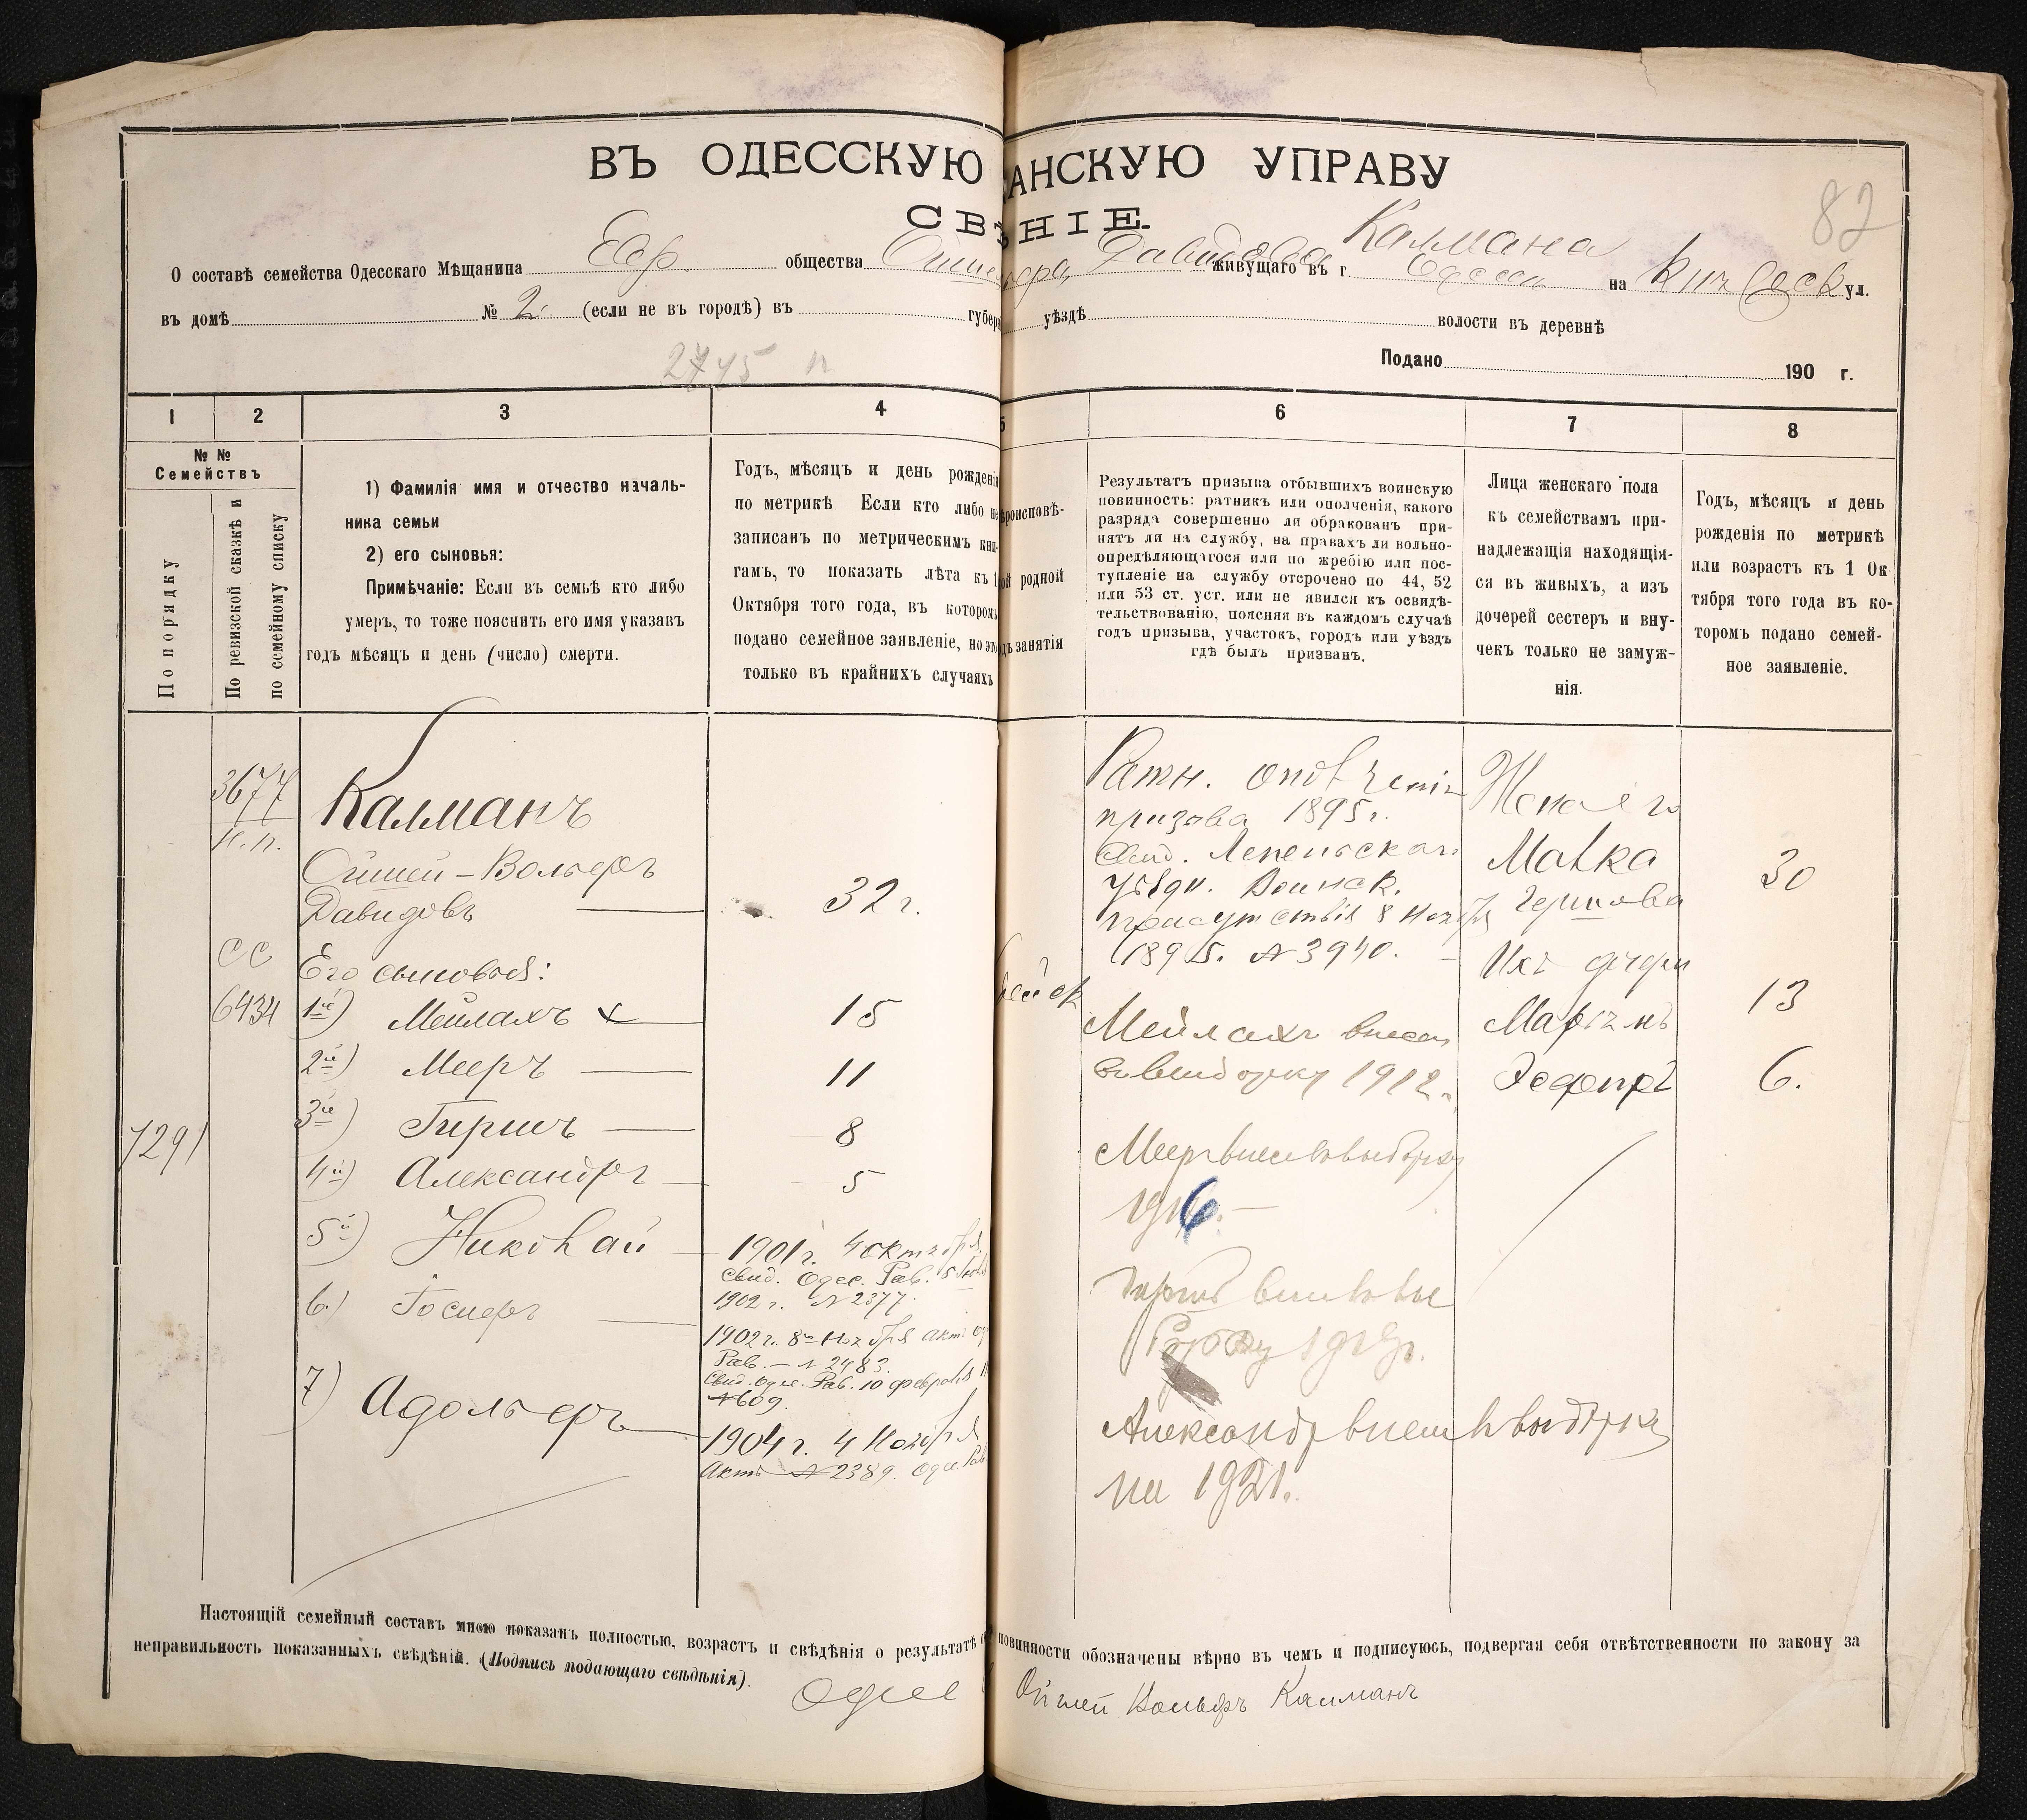 ВЪ ОДЕССКУЮ АНСКУЮ УПРАВУ
82
СВѢ НІЕ.
О составѣ семейства Одесскаго Мѣщанина Евр. общества Давидова Калмана живущаго въ г. Одессѣ на ул.
въ домѣ № 2. (если не въ городѣ) въ губерн уѣздѣ волости въ деревнѣ
2745 п
Подано 190 г.
1 2 3 4 5 6 7 8
№ №
Семействъ
По порядку
По ревизской сказкѣ и
по семейному списку
1) Фамилія имя и отчество началь-
ника семьи
2) его сыновья:
Примѣчаніе: Если въ семьѣ кто либо
умеръ, то тоже пояснить его имя указавъ
годъ мѣсяцъ и день (число) смерти.
Годъ, мѣсяцъ и день рожденія
по метрикѣ Если кто либо не
записанъ по метрическимъ кни-
гамъ, то показать лѣта къ 1
Октября того года, въ которомъ
подано семейное заявленіе, но это
только въ крайнихъ случаяхъ
роисповѣ-
ой родной
дъ занятія
Результатъ призыва отбывшихъ воинскую
повинность: ратникъ или ополченія, какого
разряда совершенно ли обракованъ при-
нятъ ли на службу, на правахъ ли вольно-
опредѣляющагося или по жребію или пос-
тупленіе на службу отсрочено по 44, 52
или 53 ст. уст. или не явился къ освидѣ-
тельствованію, поясняя въ каждомъ случаѣ
годъ призыва, участокъ, городъ или уѣздъ
гдѣ былъ призванъ.
Лица женскаго пола
къ семействамъ при-
надлежащія находящія-
ся въ живыхъ, а изъ
дочерей сестеръ и вну-
чекъ только не замуж-
нія.
Годъ, мѣсяцъ и день
рожденія по метрикѣ
или возрастъ къ 1 Ок
тября того года въ ко-
торомъ подано семей-
ное заявленіе.
3677
н.п.
Калманъ
Ойшей-Вольфъ
Давидовъ
32 г.
СС
6434
7291
Его сыновья:
1й) Мейлахъ x 15
2й) Мееръ 11
3й) Гиршъ 8
4й) Александръ 5
5й) Николай
1901 г. 4 октября.
Свид. Одес. Рав. 5
1902 г. № 2377.
6.) Іосифъ
1902 г. 8го Ноября актъ
Рав. - № 2483.
Свид. Одес. Рав. 10 февраля
№ 609.
7) Адольфъ
1904 г. 4 Ноября
Актъ № 2389. Одес Рав
ейск
Ратн. ополченія
призыва 1895 г.
Свид. Лепельскаго
уѣздн. Воинск.
присутствія 8 Ноября
1895. № 3940.
Мейлахъ внесен
въ выборку 1912 г.
Мееръ внес въ выборку
1916.
Гиршъ внес въ вы
Александръ внес въ выборку
на 1921.
Жена его
Малка
Гершова
30
Ихъ дочери
Маріамъ
13
Эсфирь
6.
Настоящій семейный составъ мною показанъ полностью, возрастъ и свѣдѣнія о результатѣ повинности обозначены вѣрно въ чемъ и подписуюсь, подвергая себя отвѣтственности по закону за
неправильность показанныхъ свѣдѣній. (Подпись подающаго свѣдѣнія).
Ойшей Вольфъ Калманъ